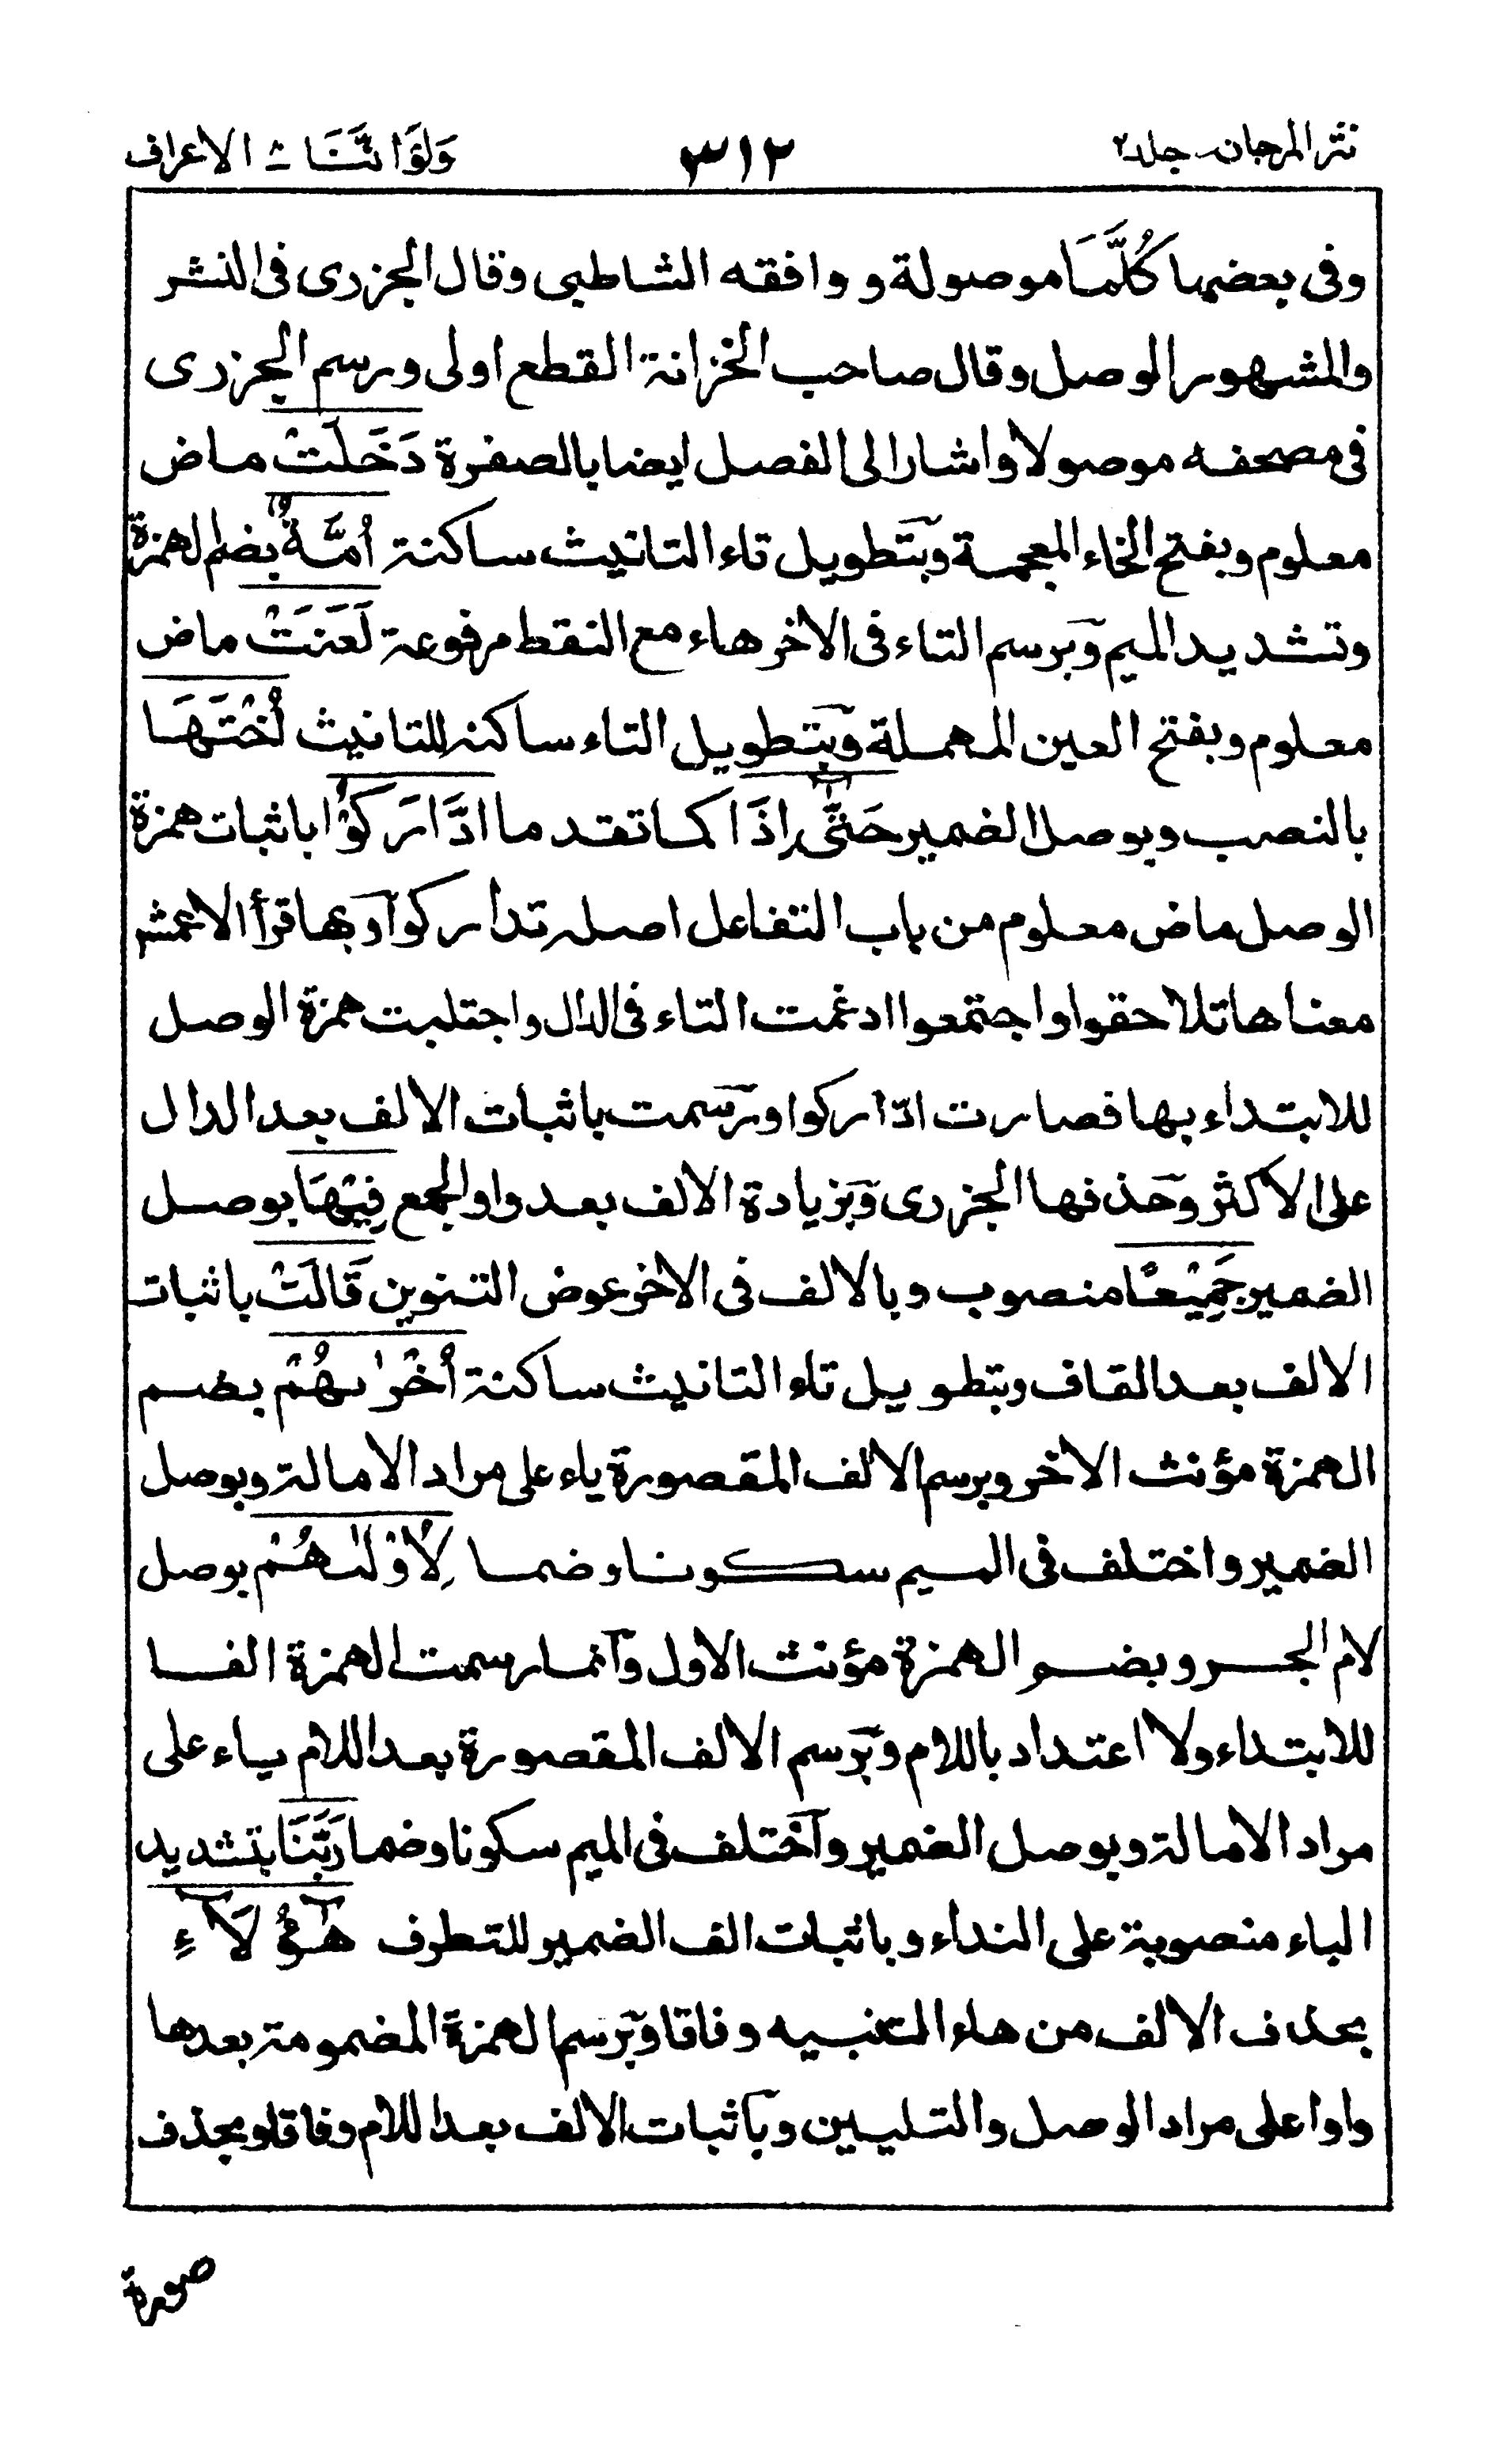 نثر المرجان۔ جلد ٢
٣١٢
وَلَوْ اَنَّنَا ۸ الاعراف
وفى بعضها كُلَّمَا موصولة ووافقه الشاطبى وقال الجزرى فى النشر
والمشهور الوصل وقال صاحب الخزانة القطع اولى ورسم الجزرى
فى مصحفه موصولا واشار الى الفصل ايضا بالصفرة دَخَلَتْ ماض
معلوم وبفتح الخاء المعجمة وبتطويل تاء التانيث ساكنة اُمَّةٌ بضم الهمزة
وتشديد الميم وبرسم التاء فى الاخر هاء مع النقط مرفوعة لَعَنَتْ ماض
معلوم وبفتح العين المهملة وبتطويل التاء ساكنة للتانيث اُخْتَهَا
بالنصب وبوصل الضمير حَتّٰى اِذَا كما تقدما ادَّارَكُوْا باثبات همزة
الوصل ماض معلوم من باب التفاعل اصله تداركوا وبها قرأ الاعمش
معناها تلاحقوا واجتمعوا ادغمت التاء فى الدال واجتلبت همزة الوصل
للابتداء بها فصارت ادّاركوا ورسمت باثبات الالف بعد الدال
على الاكثر وحذفها الجزرى وبزيادة الالف بعد واو الجمع فِيْهَا بوصل
الضمير جَمِيْعًا منصوب وبالالف فى الاخر عوض التنوين قَالَتْ باثبات
الالف بعد القاف وبتطويل تاء التانيث ساكنة اُخْرٰىهُمْ بضم
الهمزة مؤنث الاخر وبرسم الالف المقصورة ياء على مراد الامالة وبوصل
الضمير واختلف فى الميم سكونا وضما لِاُوْلٰىهُمْ بوصل
لام الجر وبضم الهمزة مؤنث الاول وانما رسمت الهمزة الفا
للابتداء ولا اعتداد باللام وبرسم الالف المقصورة بعد اللام ياء على
مراد الامالة وبوصل الضمير واختلف فى الميم سكونا وضما رَبَّنَا بتشديد
الباء منصوبة على النداء وباثبات الف الضمير للتطرف هٰٓؤُلَآءِ
بحذف الالف من هاء التنبيه وفاقا وبرسم الهمزة المضمومة بعدها
واوا على مراد الوصل والتليين وباثبات الالف بعد اللام وفاقا وبحذف
صورة